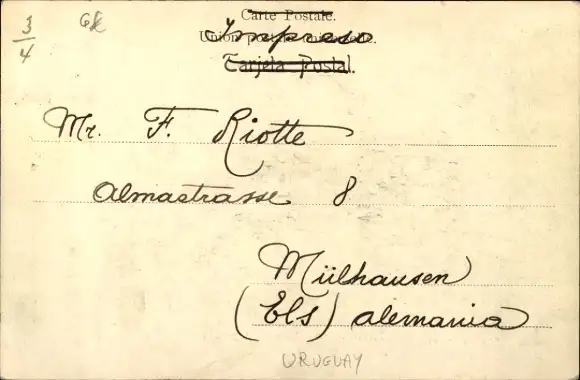 3/4
Carte Postale.
Impreso
Tarjeta Postal.
Mr. F. Riotte
Almastrasse 8
Mülhausen
(Els) Alemania
URUGUAY